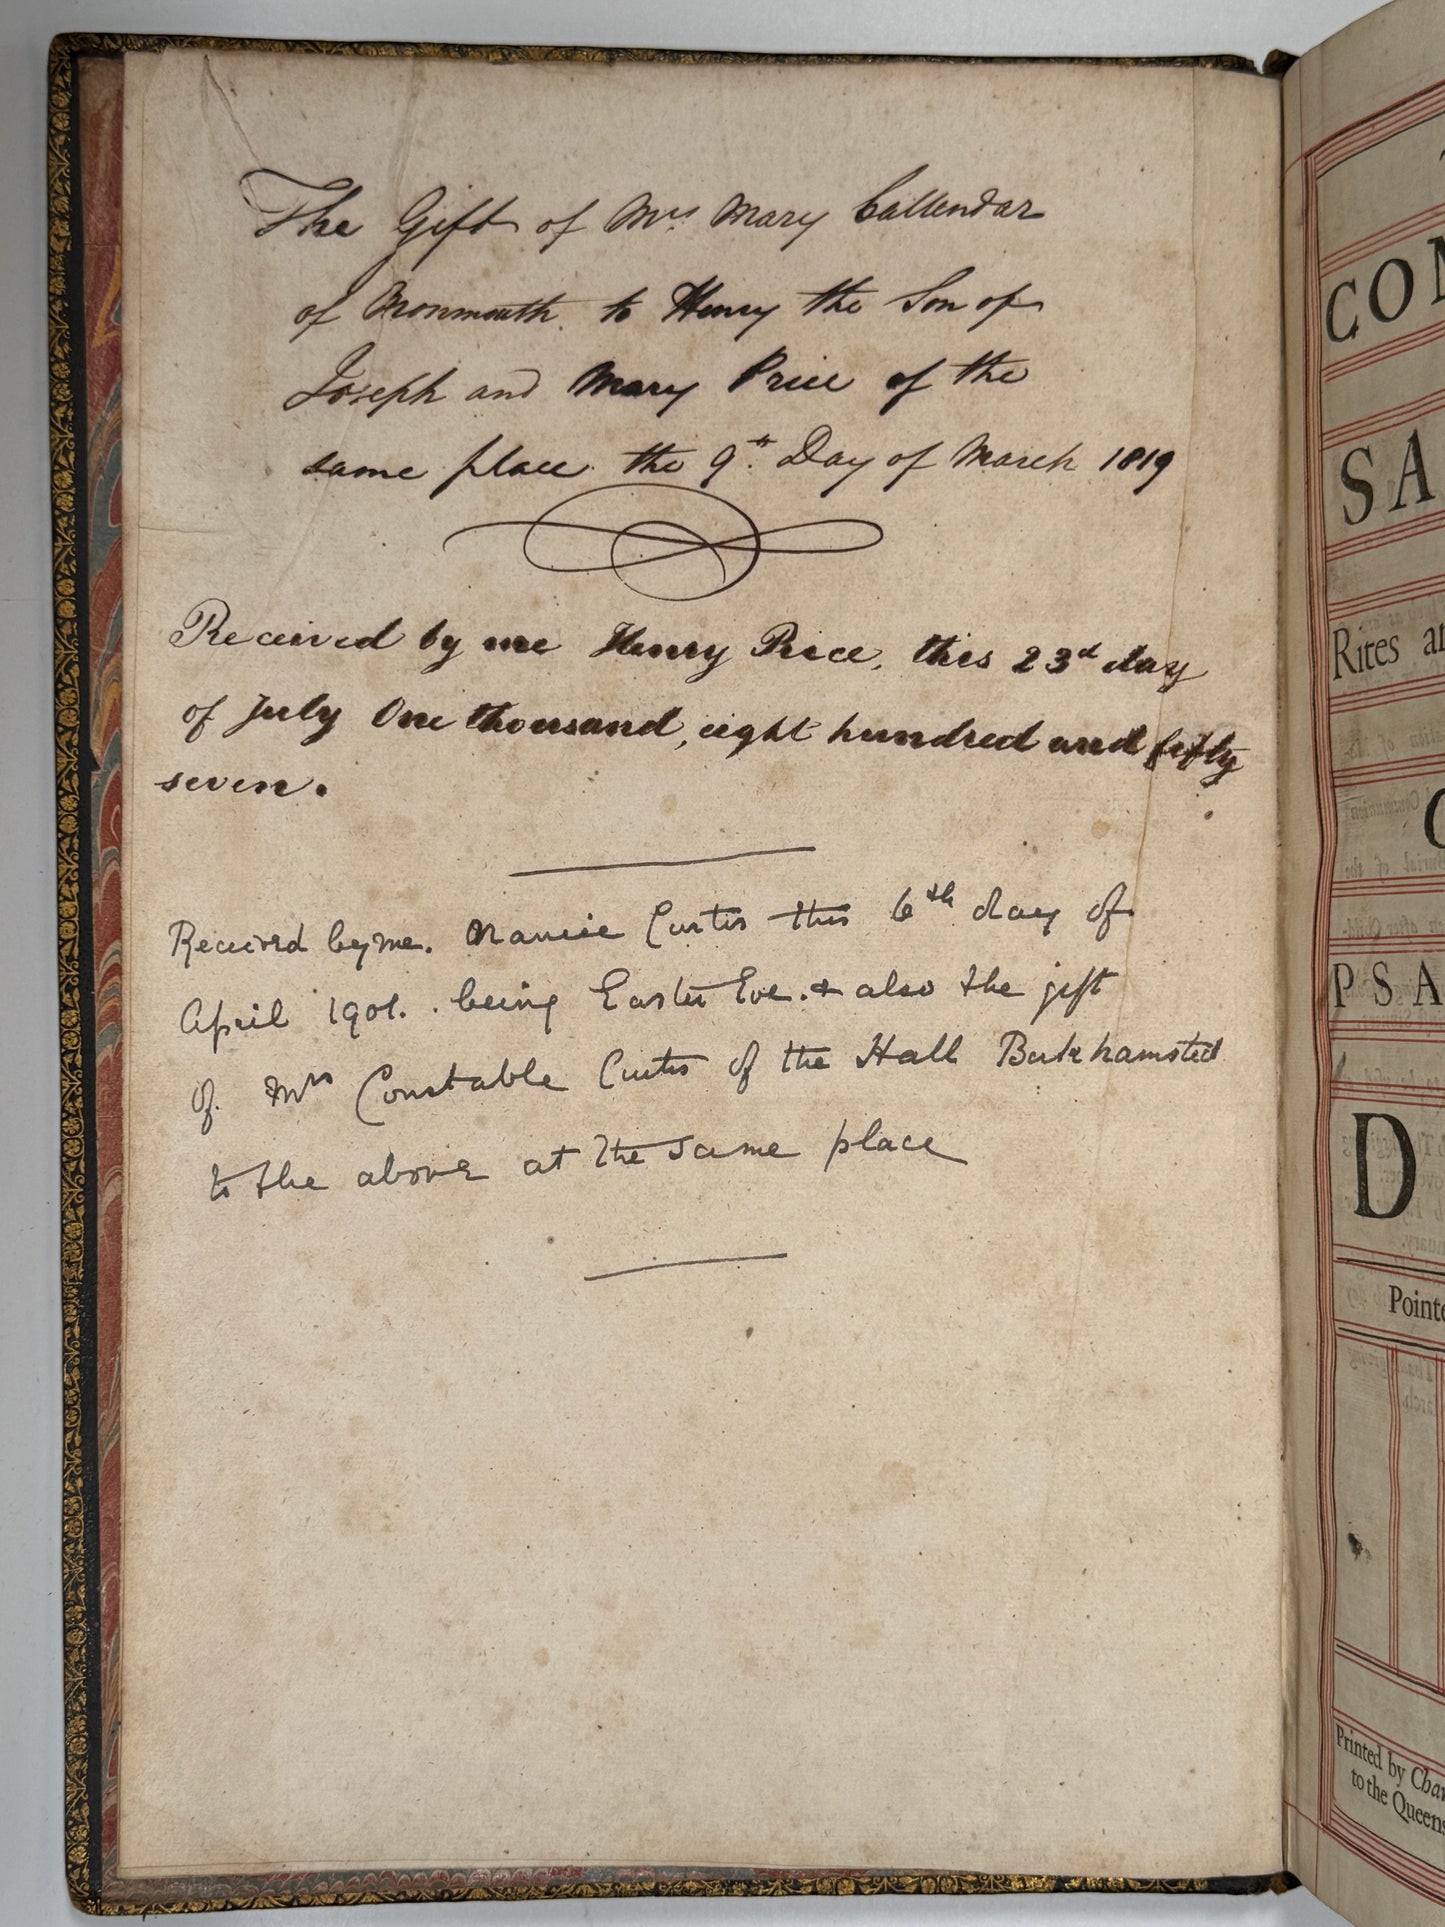 The Gift of Mrs. Mary Callendar
of Monmouth to Henry the Son of
Joseph and Mary Price of the
same place the 9th Day of March 1819
Received by me Henry Price, this 23d day
of July One thousand, eight hundred and fifty
seven.
Received by me. Curtis this 6th day of
April 1901. being Easter Eve. & also the gift
of Mrs Constable Curtis of the Hall Berkhamsted
to the above at the same place
CO
SA
Rites
PSA
D
Printed by
to the Queens